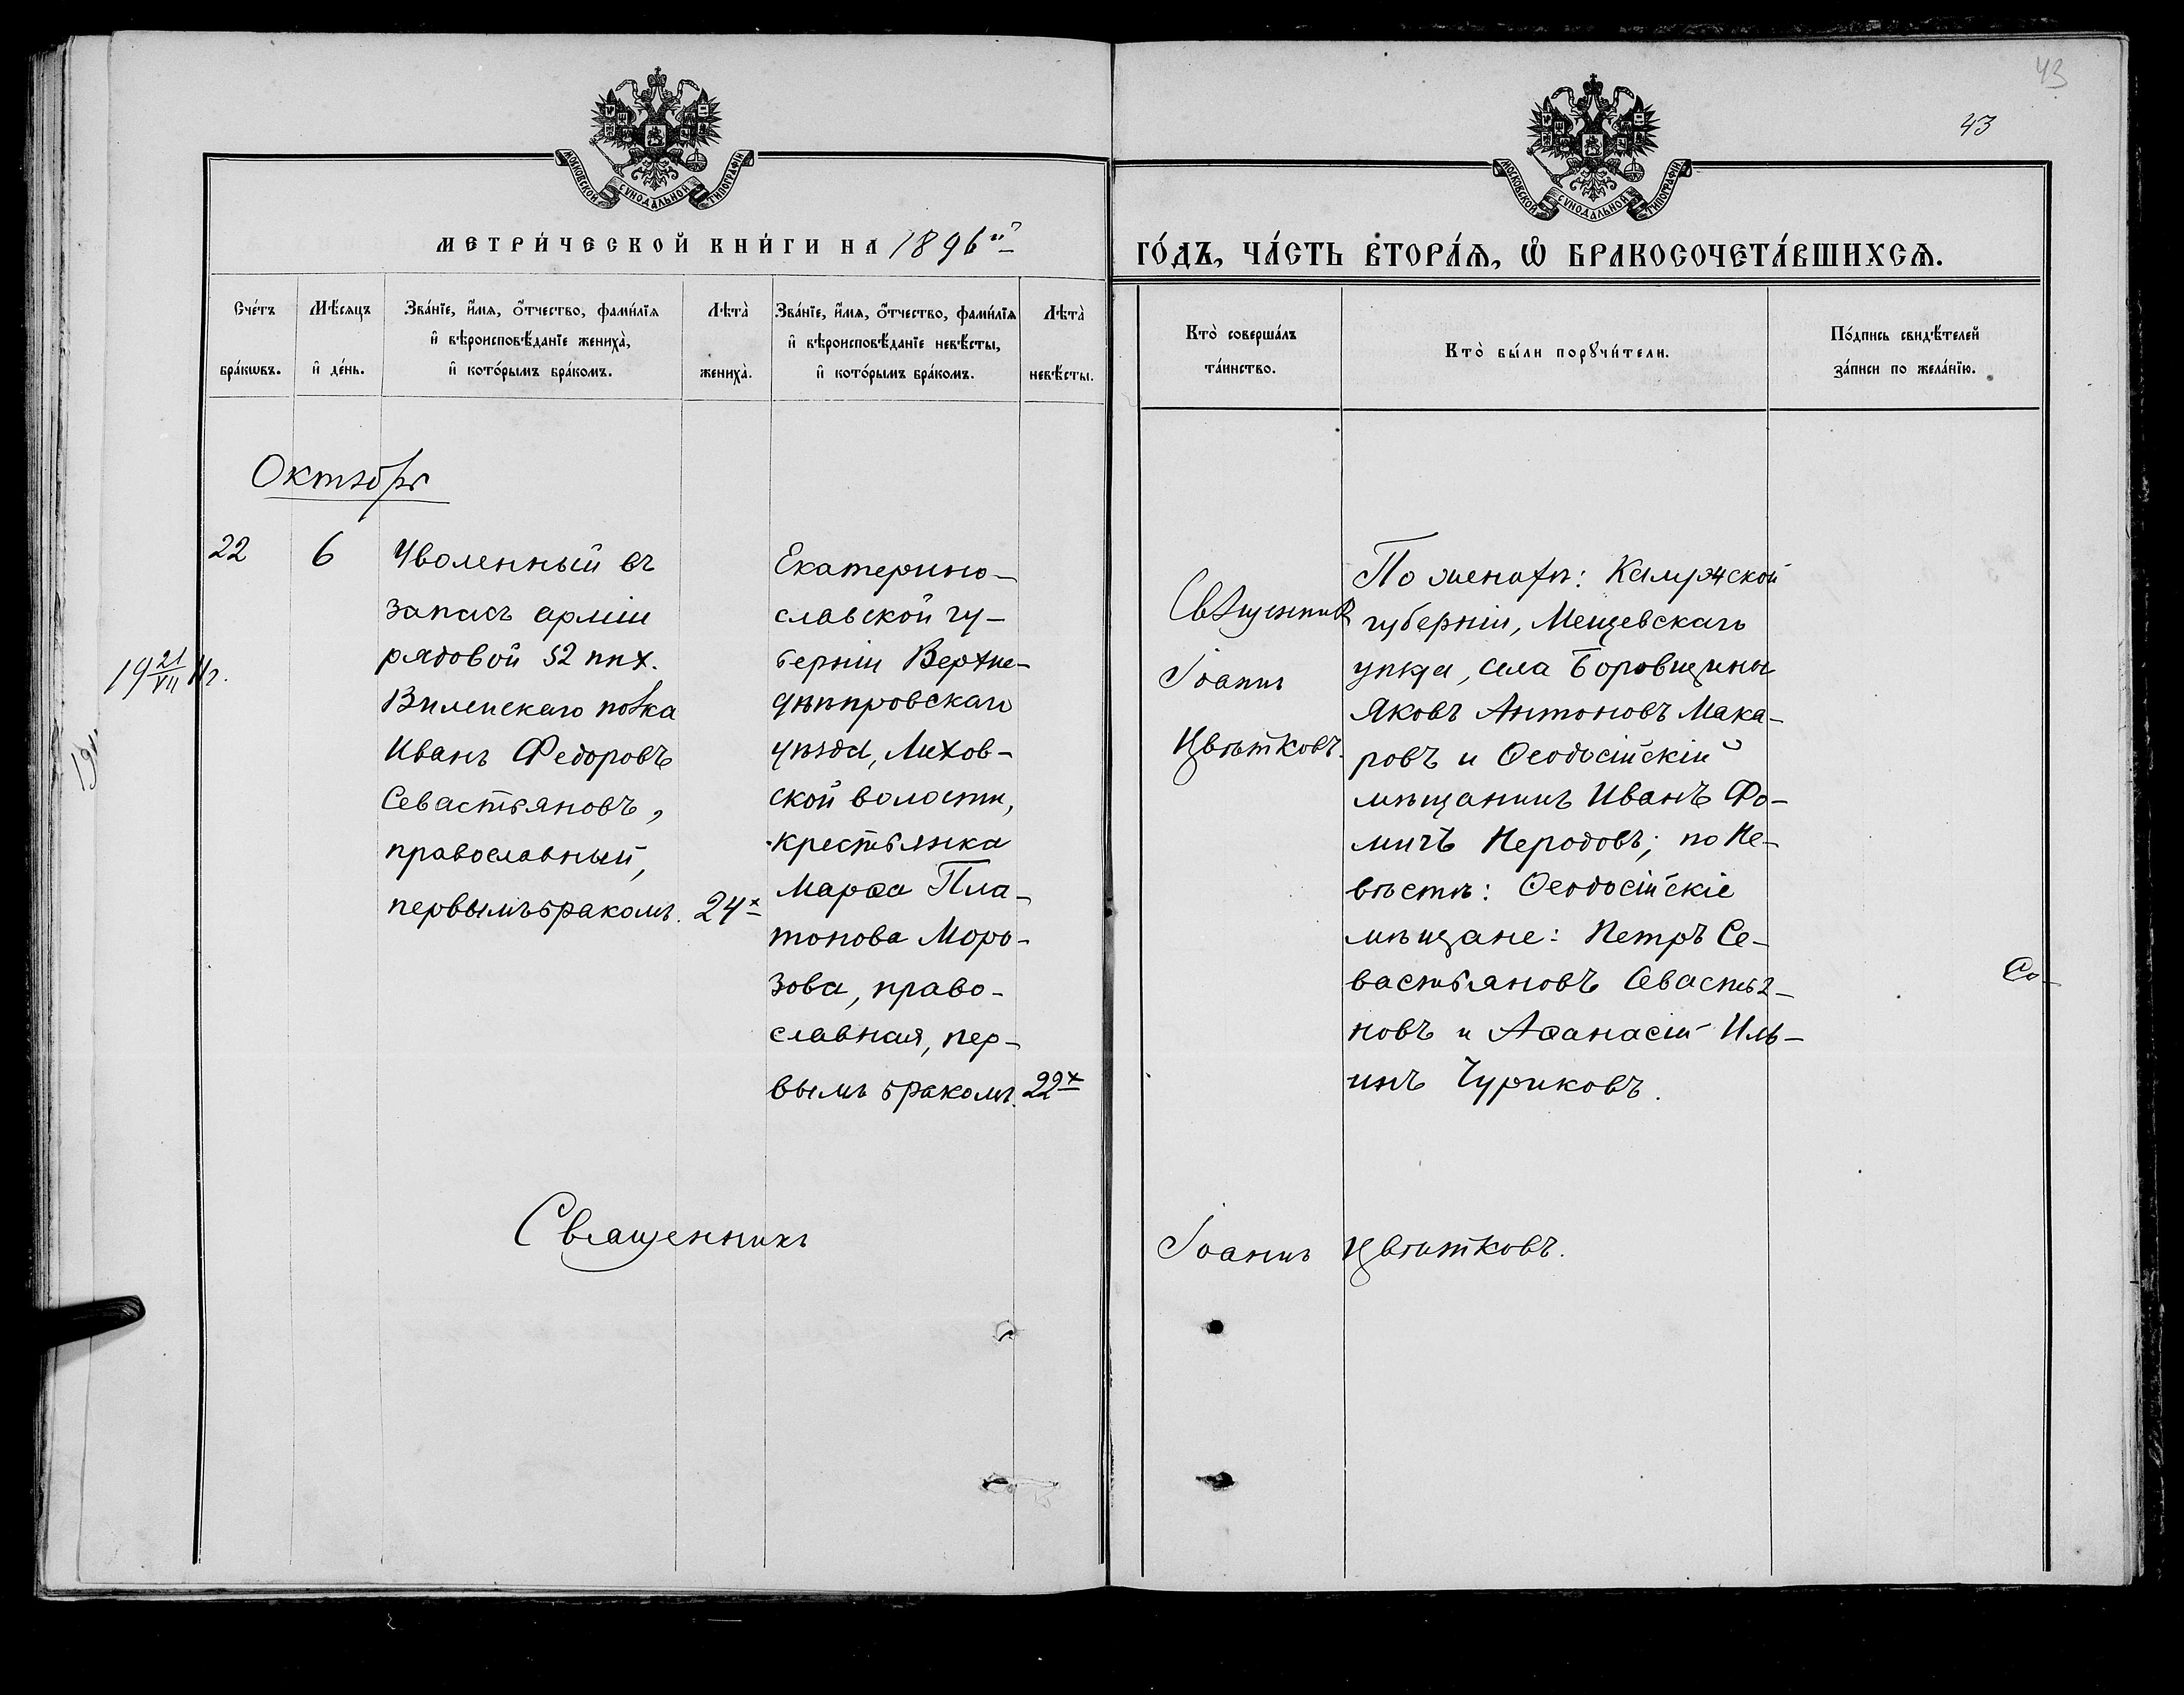 43
43
МОСКОВСКОЙ СѴНОДАЛЬНОЙ ТИПОГРАФІИ
МОСКОВСКОЙ СѴНОДАЛЬНОЙ ТИПОГРАФІИ
МЕТРИ́ЧЕСКОЙ КНИ́ГИ НА 1896й
ГО́ДЪ, ЧА́СТЬ ВТОРА́Я, Ѡ БРАКОСОЧЕТА́ВШИХСЯ.
Сче́тъ бра́кѡвъ.
Мѣ́сяцъ и де́нь.
Зва́нїе, и́мя, о́тчество, фами́лїя
и вѣроисповѣ́данїе жениха̀,
и кото́рымъ бра́комъ.
Лѣта̀ жениха̀.
Зва́нїе, и́мя, о́тчество, фами́лїя
и вѣроисповѣ́данїе невѣ́сты,
и кото́рымъ бра́комъ.
Лѣта̀ невѣ́сты.
Кто̀ соверша́лъ
та́инство.
Кто̀ бы́ли порꙋчи́тели.
По́дпись свидѣ́телей
за́писи по жела́нїю.
Октябрь
22
6
Уволенный въ
запасъ арміи
рядовой 52 пѣх.
Виленскаго полка
Иванъ Федоровъ
Севастьяновъ,
православный,
первымъ бракомъ. 24х
Екатерино-
славской гу-
берніи Верхне-
днѣпровскаго
уѣзда, Лихов-
ской волости,
крестьянка
Марѳа Пла-
тонова Моро-
зова, право-
славная, пер-
вымъ бракомъ. 22х
Священникъ
Іоаннъ
Цвѣтковъ.
По женихѣ: Калужской
губерніи, Мещевскаго
уѣзда, села Боровщины
Яковъ Антоновъ Мака-
ровъ и Ѳеодосійскій
мѣщанинъ Иванъ Фо-
мичъ Неродовъ; по не-
вѣстѣ: Ѳеодосійскіе
мѣщане: Петръ Се-
вастьяновъ Севастья-
новъ и Аѳанасій Иль-
инъ Чуриковъ.
Со-
19 21/VII 11г.
Священникъ Іоаннъ Цвѣтковъ.